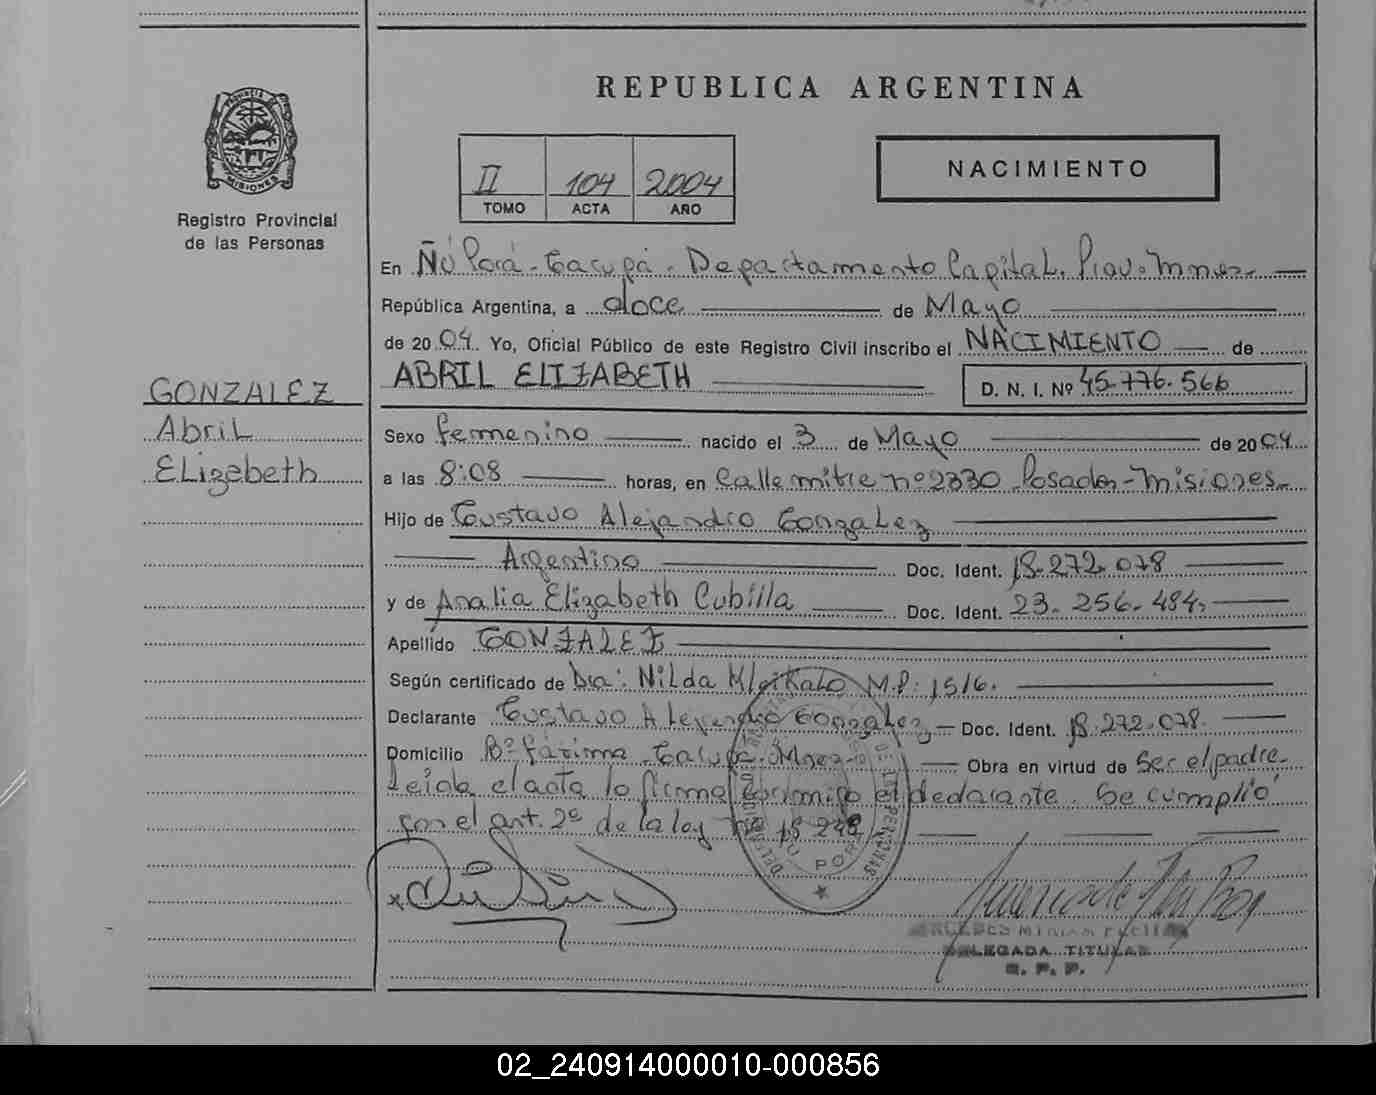 REPUBLICA ARGENTINA
PROVINCIA DE
MISIONES
Registro Provincial
de las Personas
II 104 2004
TOMO ACTA AÑO
NACIMIENTO
En Ñú Porá - Garupá - Departamento Capital. Prov. Mnes.
República Argentina, a doce de Mayo
de 2004. Yo, Oficial Público de este Registro Civil inscribo el NACIMIENTO de
ABRIL ELIZABETH D. N. I. Nº 45.776.566
GONZALEZ
Abril
Elizabeth
Sexo femenino nacido el 3 de Mayo de 2004
a las 8:08 horas, en Calle mitre nº 2330 Posadas - Misiones
Hijo de Gustavo Alejandro Gonzalez
Argentino Doc. Ident. 18.272.078
y de Analia Elizabeth Cubilla Doc. Ident. 23.256.484
Apellido GONZALEZ
Según certificado de Dra: Nilda M.P: 1516.
Declarante Gustavo Alejandro Gonzalez Doc. Ident. 18.272.078.
Domicilio Bº Fátima - Garupá - Mnes Obra en virtud de Ser el padre
Leída el acta la firma conmigo el declarante. Se cumplió
con el art. 2º de la ley nº 18.248
DELEGADA TITULAR
R. P. P.
02_240914000010-000856